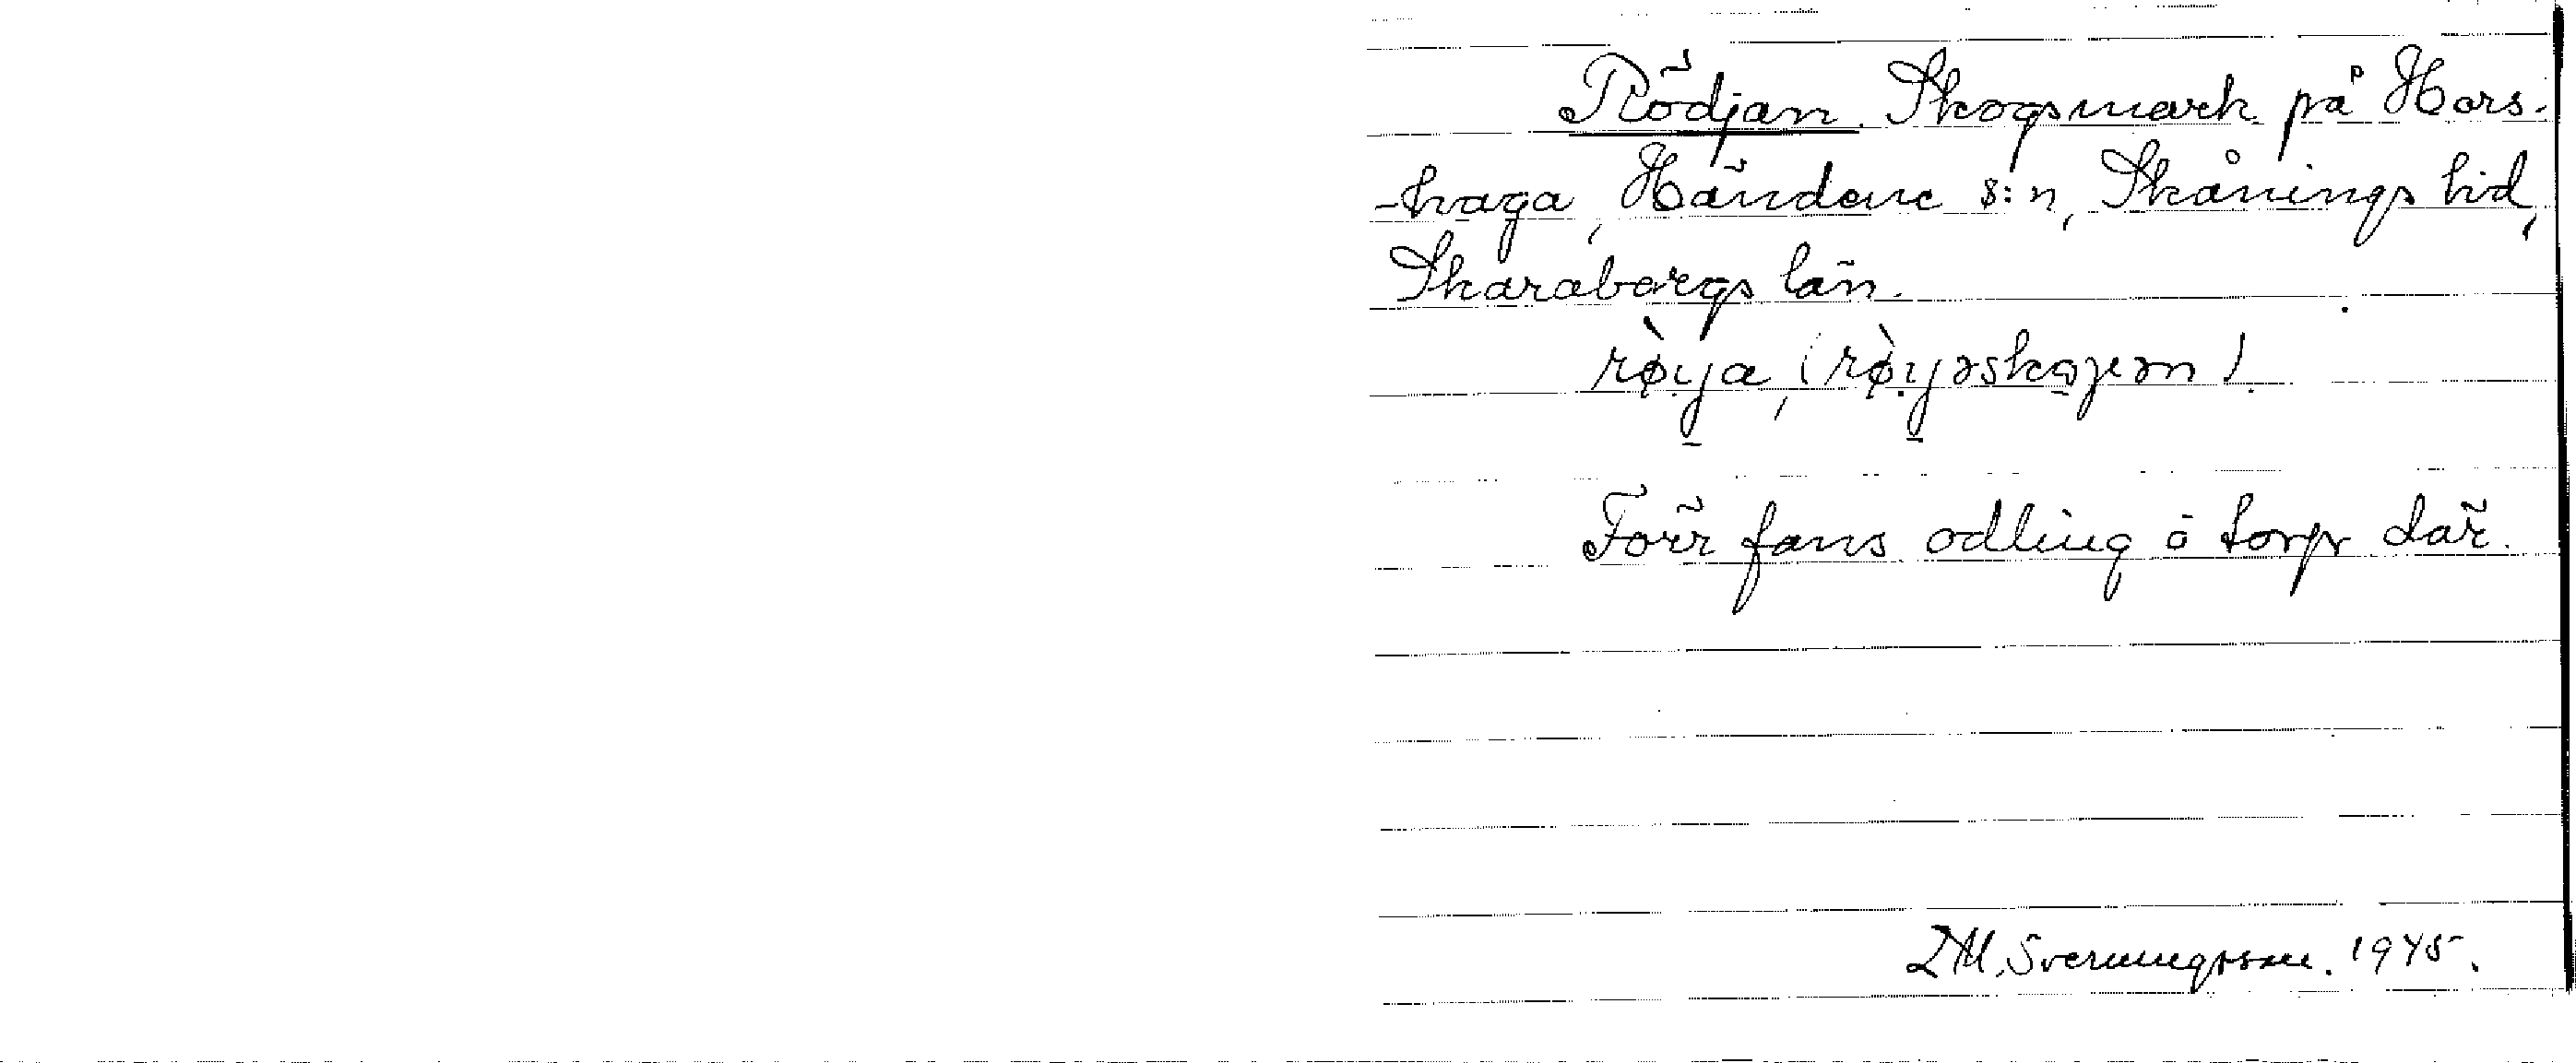 Rödjan. Skogsmark på Hors-
-haga, Händene s:n, Skånings hd,
Skaraborgs län.
rø̀ya, (rø̀yəskoɡən).
Förr fans odling ö torp där.
Sverningsson. 1945.